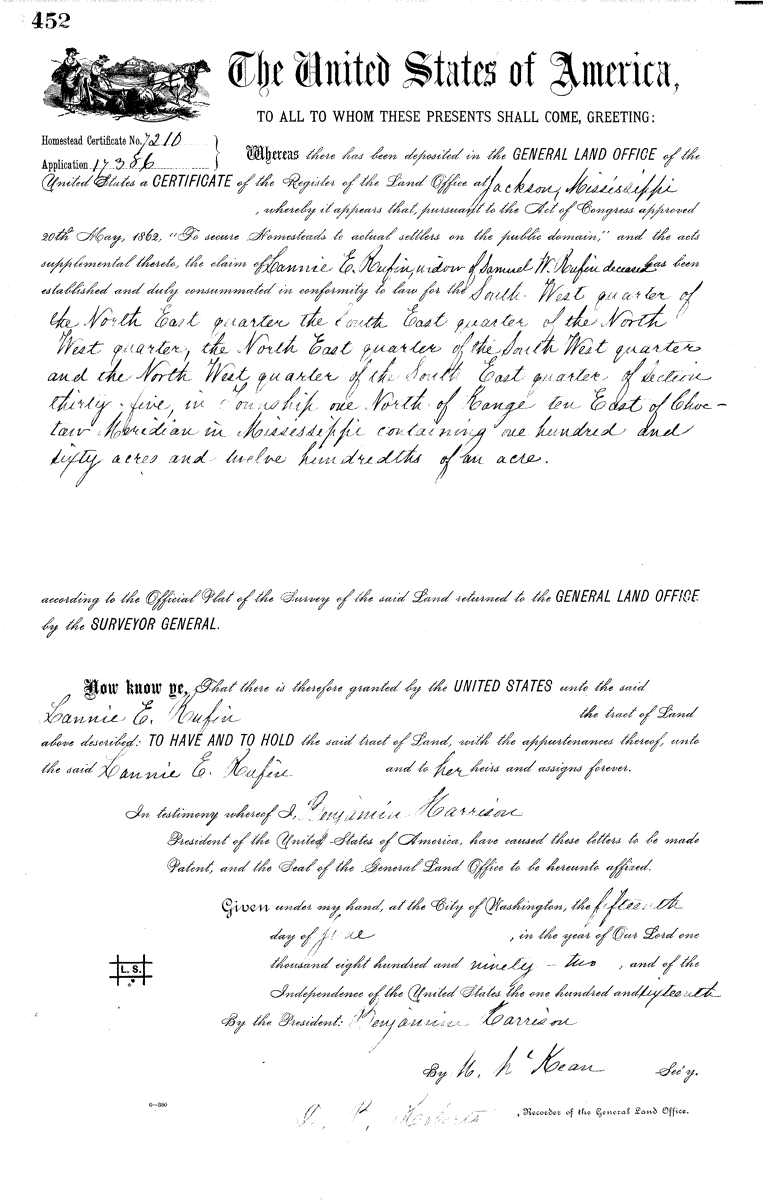 452
The United States of America,
TO ALL TO WHOM THESE PRESENTS SHALL COME, GREETING:
Homestead Certificate No. 7210
Application 17386
Whereas there has been deposited in the GENERAL LAND OFFICE of the
United States a CERTIFICATE of the Register of the Land Office at Jackson, Mississippi
, whereby it appears that, pursuant to the Act of Congress approved
20th May, 1862, "To secure Homesteads to actual settlers on the public domain," and the acts
supplemental thereto, the claim of Lannie E. Rufin, widow of Samuel W. Rufin deceased has been
established and duly consummated in conformity to law for the South West quarter of
the North East quarter the South East quarter of the North
West quarter, the North East quarter of the South West quarter
and the North West quarter of the South East quarter of Section
thirty-five, in Township one North of Range ten East of Choc-
taw Meridian in Mississippi containing one hundred and
sixty acres and twelve hundredths of an acre.
according to the Official Plat of the Survey of the said Land returned to the GENERAL LAND OFFICE
by the SURVEYOR GENERAL.
Now know ye, That there is therefore granted by the UNITED STATES unto the said
Lannie E. Rufin the tract of Land
above described: TO HAVE AND TO HOLD the said tract of Land, with the appurtenances thereof, unto
the said Lannie E. Rufin and to her heirs and assigns forever.
In testimony whereof I, Benjamin Harrison
President of the United States of America, have caused these letters to be made
Patent, and the Seal of the General Land Office to be hereunto affixed.
Given under my hand, at the City of Washington, the fifteenth
day of June, in the year of Our Lord one
thousand eight hundred and ninety-two, and of the
Independence of the United States the one hundred and sixteenth
L. S.
By the President: Benjamin Harrison
By M. McKean Sec'y.
6—380
D. P. Roberts, Recorder of the General Land Office.